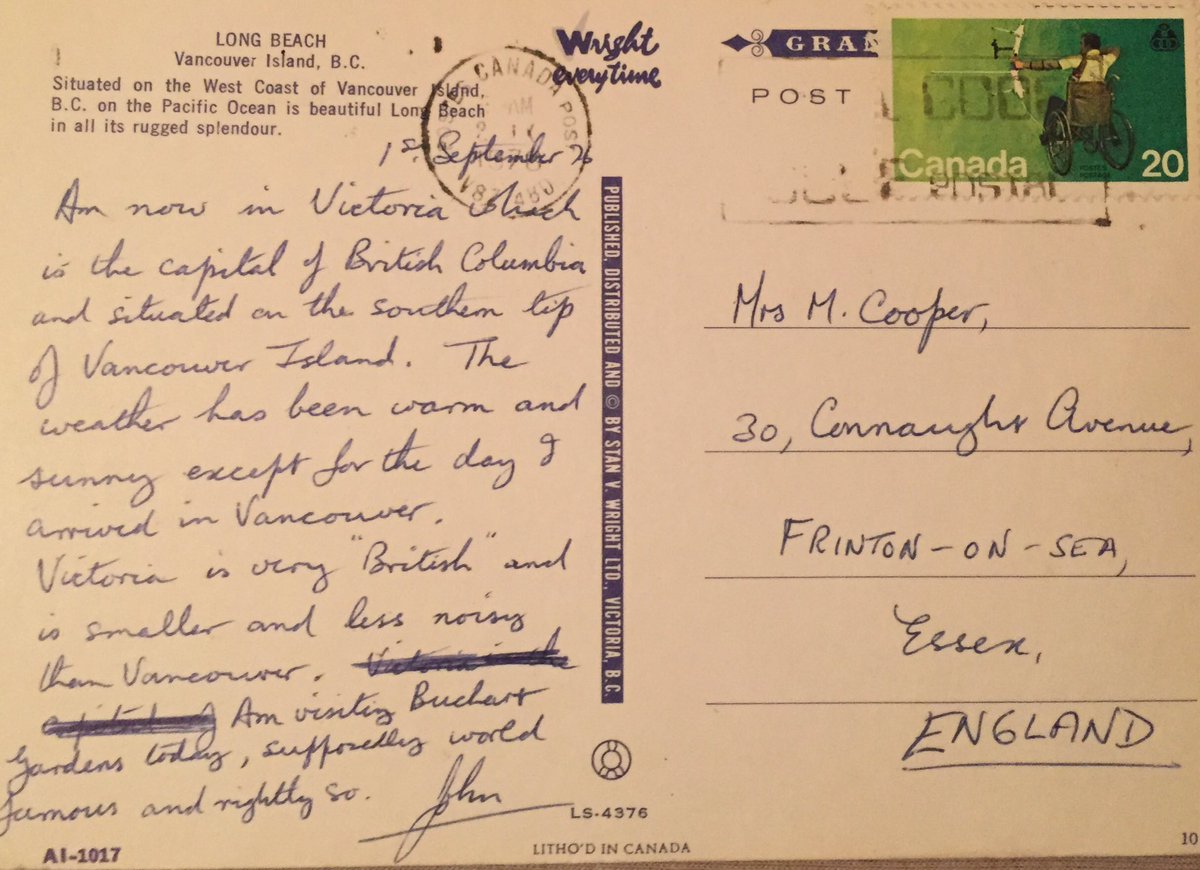 LONG BEACH
Vancouver Island, B.C.
Situated on the West Coast of Vancouver Island,
B.C. on the Pacific Ocean is beautiful Long Beach
in all its rugged splendour.
1st September 76
Am now in Victoria which
is the capital of British Columbia
and situated on the southern tip
of Vancouver Island. The
weather has been warm and
sunny except for the day I
arrived in Vancouver.
Victoria is very "British" and
is smaller and less noisy
than Vancouver. Victoria is the
capital of Am visiting Buchart
Gardens today, supposedly world
famous and rightly so. John
AI-1017
Wright
everytime
CANADA POST
PUBLISHED, DISTRIBUTED AND © BY STAN V. WRIGHT LTD., VICTORIA, B.C.
LS-4376
LITHO'D IN CANADA
GRAN
POST
CODE
POSTAL
Canada
POSTES
POSTAGE
20
Mrs M. Cooper,
30, Connaught Avenue,
FRINTON-ON-SEA,
Essex,
ENGLAND
10